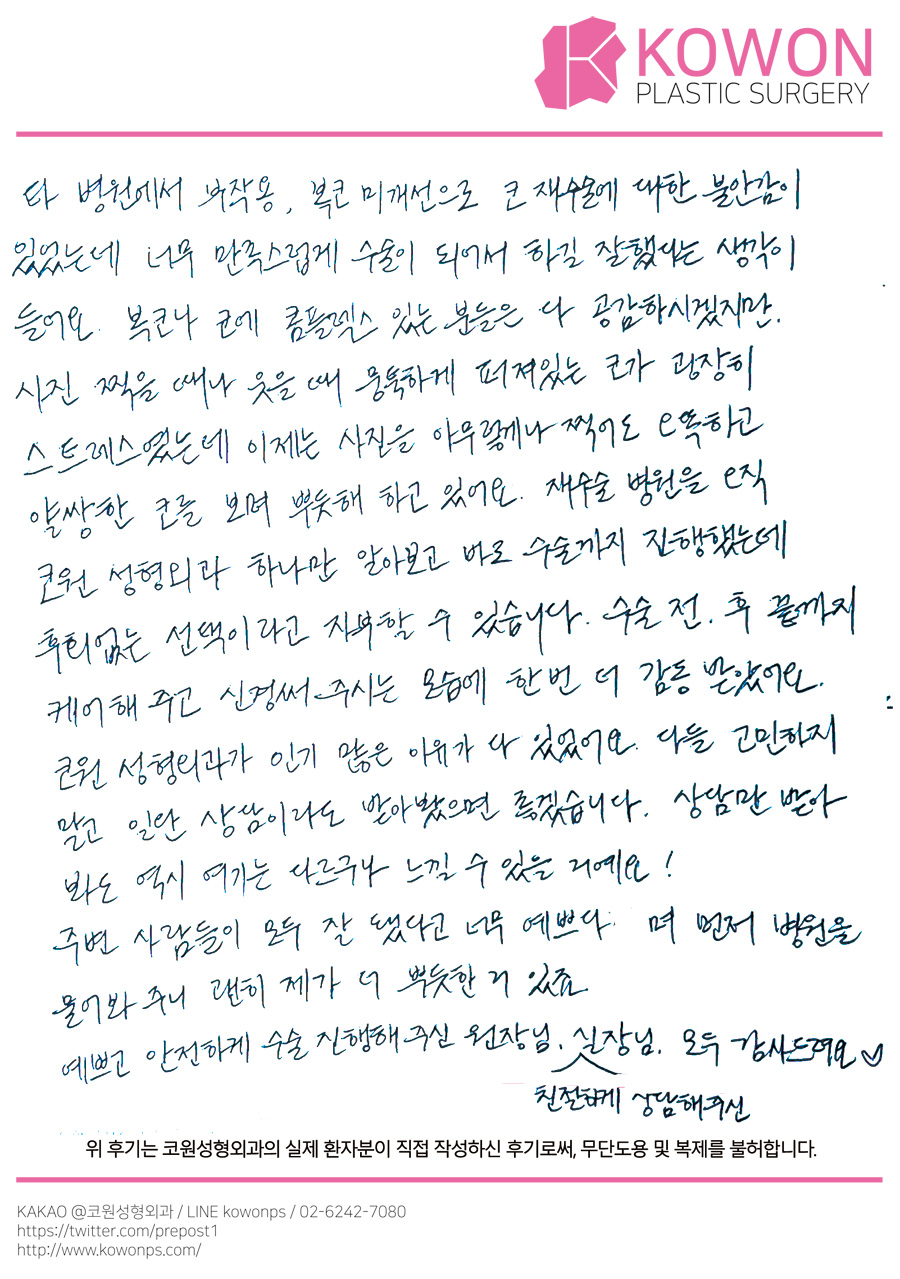 KOWON
PLASTIC SURGERY
타 병원에서 부작용, 복코 미개선으로 코 재수술에 대한 불안감이
있었는데 너무 만족스럽게 수술이 되어서 하길 잘했다는 생각이
들어요. 복코나 코에 콤플렉스 있는 분들은 다 공감하시겠지만,
사진 찍을 때나 웃을 때 뭉툭하게 퍼져있는 코가 굉장히
스트레스였는데 이제는 사진을 아무렇게나 찍어도 오똑하고
얄쌍한 코를 보며 뿌듯해 하고 있어요. 재수술 병원을 오직
코원 성형외과 하나만 알아보고 바로 수술까지 진행했는데
후회없는 선택이라고 자부할 수 있습니다. 수술 전, 후 끝까지
케어해 주고 신경써 주시는 모습에 한번 더 감동 받았어요.
코원 성형외과가 인기 많은 이유가 다 있었어요. 다들 고민하지
말고 일단 상담이라도 받아봤으면 좋겠습니다. 상담만 받아
봐도 역시 여기는 다르구나 느낄 수 있을 거예요!
주변 사람들이 모두 잘 됐다고 너무 예쁘다. 며 먼저 병원을
물어봐 주니 괜히 제가 더 뿌듯한 거 있죠
예쁘고 안전하게 수술 진행해 주신 원장님, 실장님, 모두 감사드려요♡
친절하게 상담해주신
위 후기는 코원성형외과의 실제 환자분이 직접 작성하신 후기로써, 무단도용 및 복제를 불허합니다.
KAKAO @코원성형외과 / LINE kowonps / 02-6242-7080
https://twitter.com/prepost1
http://www.kowonps.com/